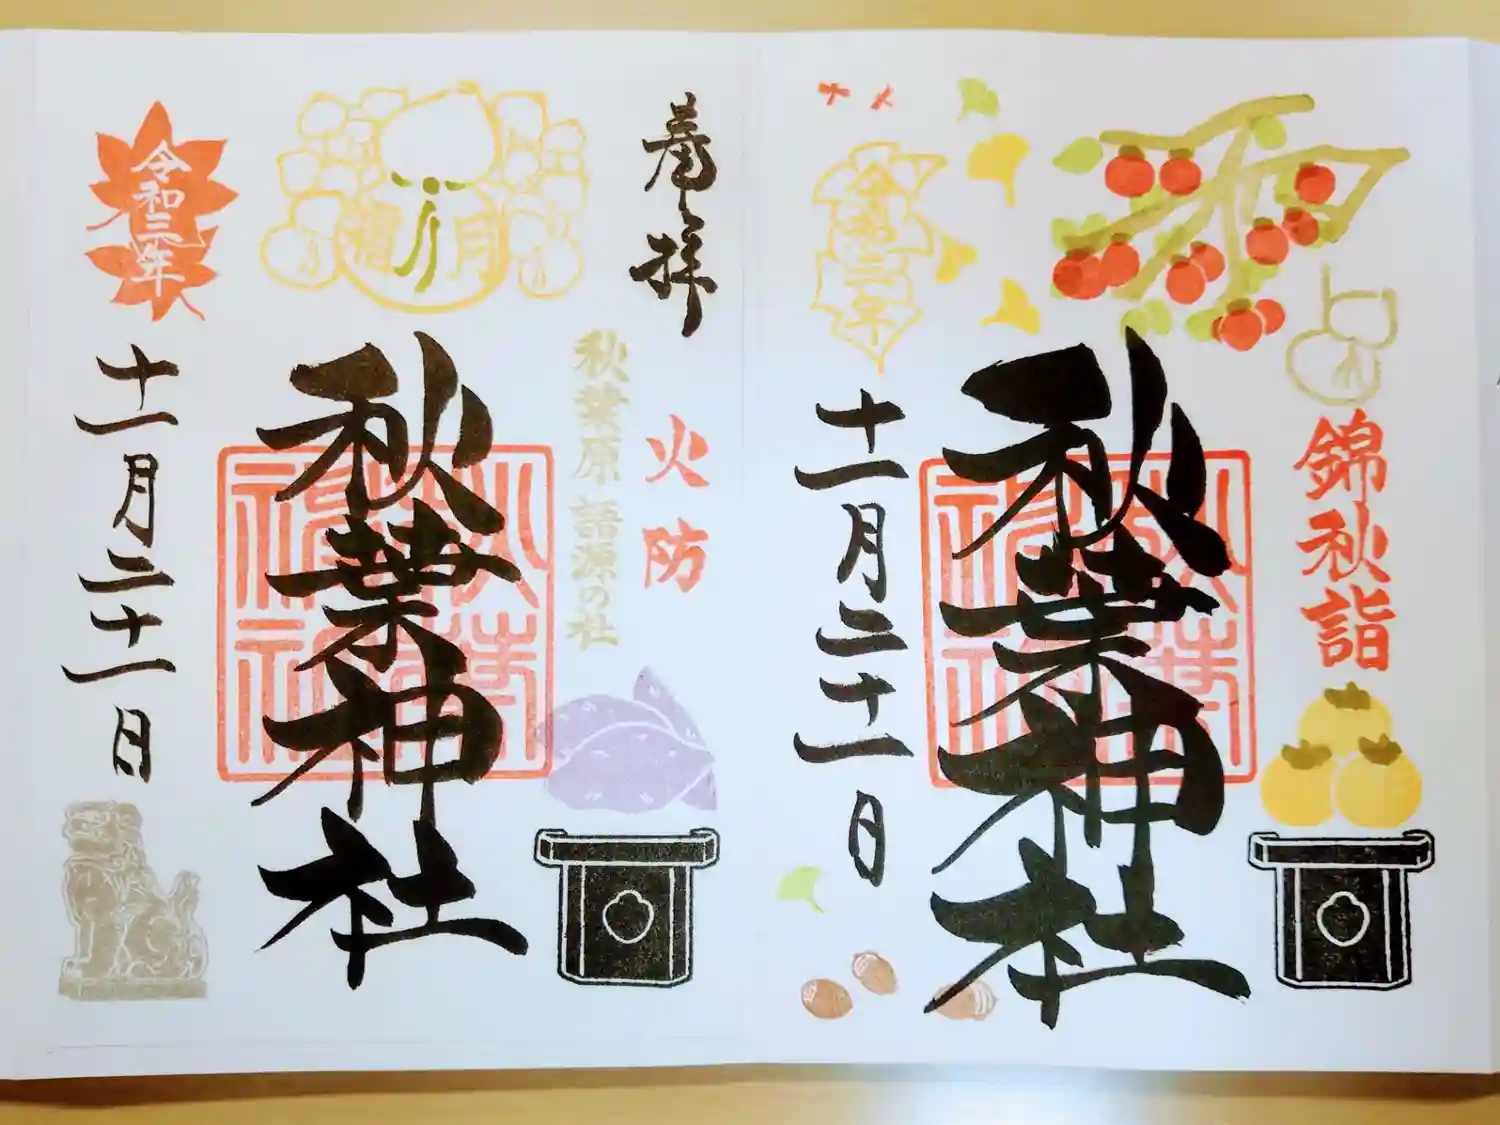 錦秋詣
秋葉神社
令和三年
十一月二十一日
奉拝
火防
秋葉原 語源の社
霜月
秋葉神社
令和三年
十一月二十一日